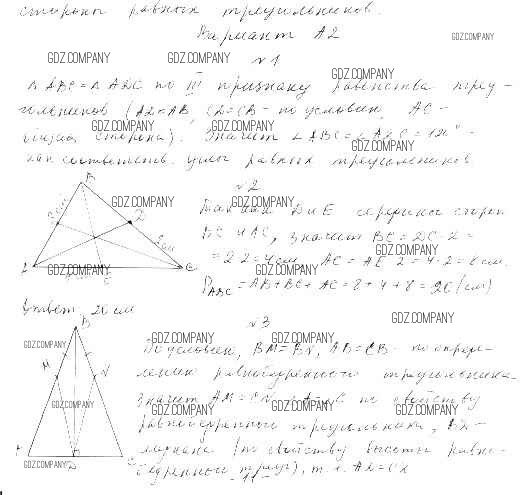 стороны равных треугольников.
Вариант А2
GDZ.COMPANY
GDZ.COMPANY GDZ.COMPANY
№1
GDZ.COMPANY
Δ ABC = Δ ADC по III признаку равенства треу-
гольников (AD = AB, CD = CB - по условию, AC -
GDZ.COMPANY GDZ.COMPANY
общая сторона). Значит ∠ABC = ∠ADC = 120° -
GDZ.COMPANY
как соответств. углы равных треугольников
№2
B
GDZ.COMPANY GDZ.COMPANY
Так как D и E середины сторон
BC и AC, значит BC = DC · 2 =
GDZ.COMPANY
= 2 · 2 = 4 см, AC = AE · 2 = 4 · 2 = 8 см.
GDZ.COMPANY GDZ.COMPANY
P ABC = AB + BC + AC = 8 + 4 + 8 = 20 (см)
Ответ: 20 см
GDZ.COMPANY
№3
B
GDZ.COMPANY GDZ.COMPANY GDZ.COMPANY
По условию, BM = BN, AB = CB - по опреде-
лению равнобедренного треугольника.
M N
Значит AM = CN по свойству
GDZ.COMPANY GDZ.COMPANY GDZ.COMPANY GDZ.COMPANY
равнобедренного треугольника, BD -
медиана (по свойству высоты равно-
GDZ.COMPANY D C GDZ.COMPANY
бедренного треуг), т.е. AD = CD
- 11 -